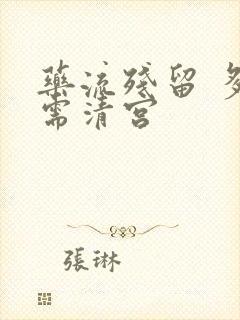 藥流殘留 多
需清宮
張琳